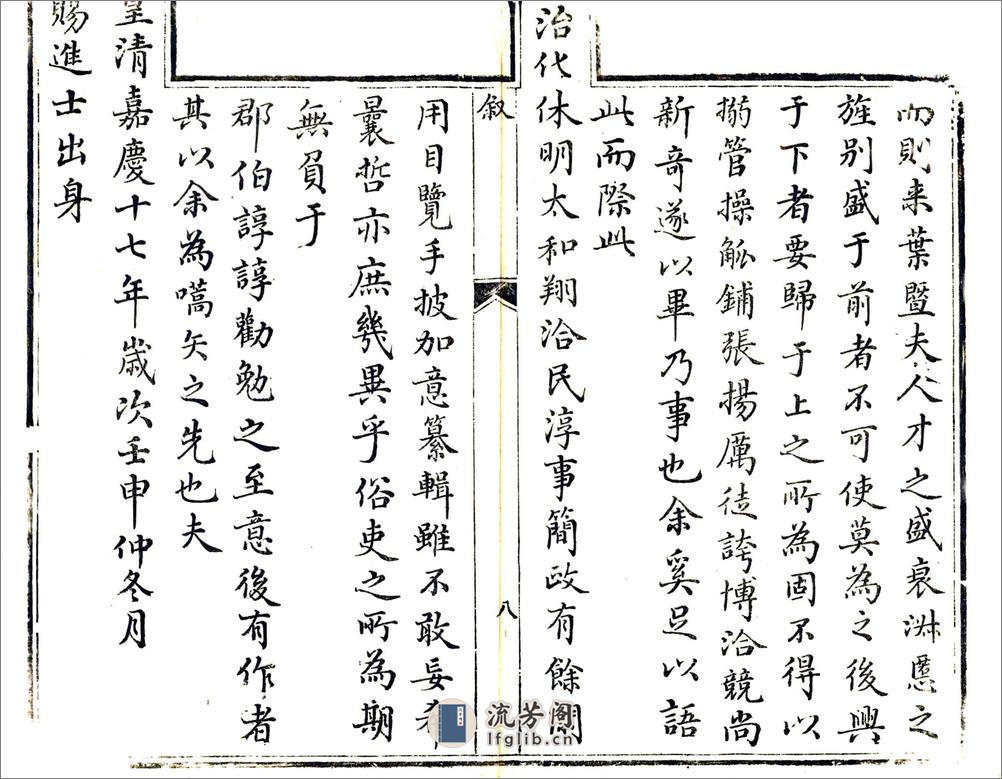 而則来葉暨夫人才之盛衰淑慝之
旌别盛于前者不可使莫為之後興
于下者要歸于上之所為固不得以
搦管操觚鋪張揚厲徒誇博洽競尚
新奇遂以畢乃事也余奚足以語
此而際此
治代休明太和翔洽民淳事簡政有餘閒
叙
八
用目覽手披加意纂輯雖不敢妄希
曩哲亦庶幾異乎俗吏之所為期
無負于
郡伯諄諄勸勉之至意後有作者
其以余為嚆矢之先也夫
皇清嘉慶十七年歲次壬申仲冬月
賜進士出身
流芳阁
lfglib.cn